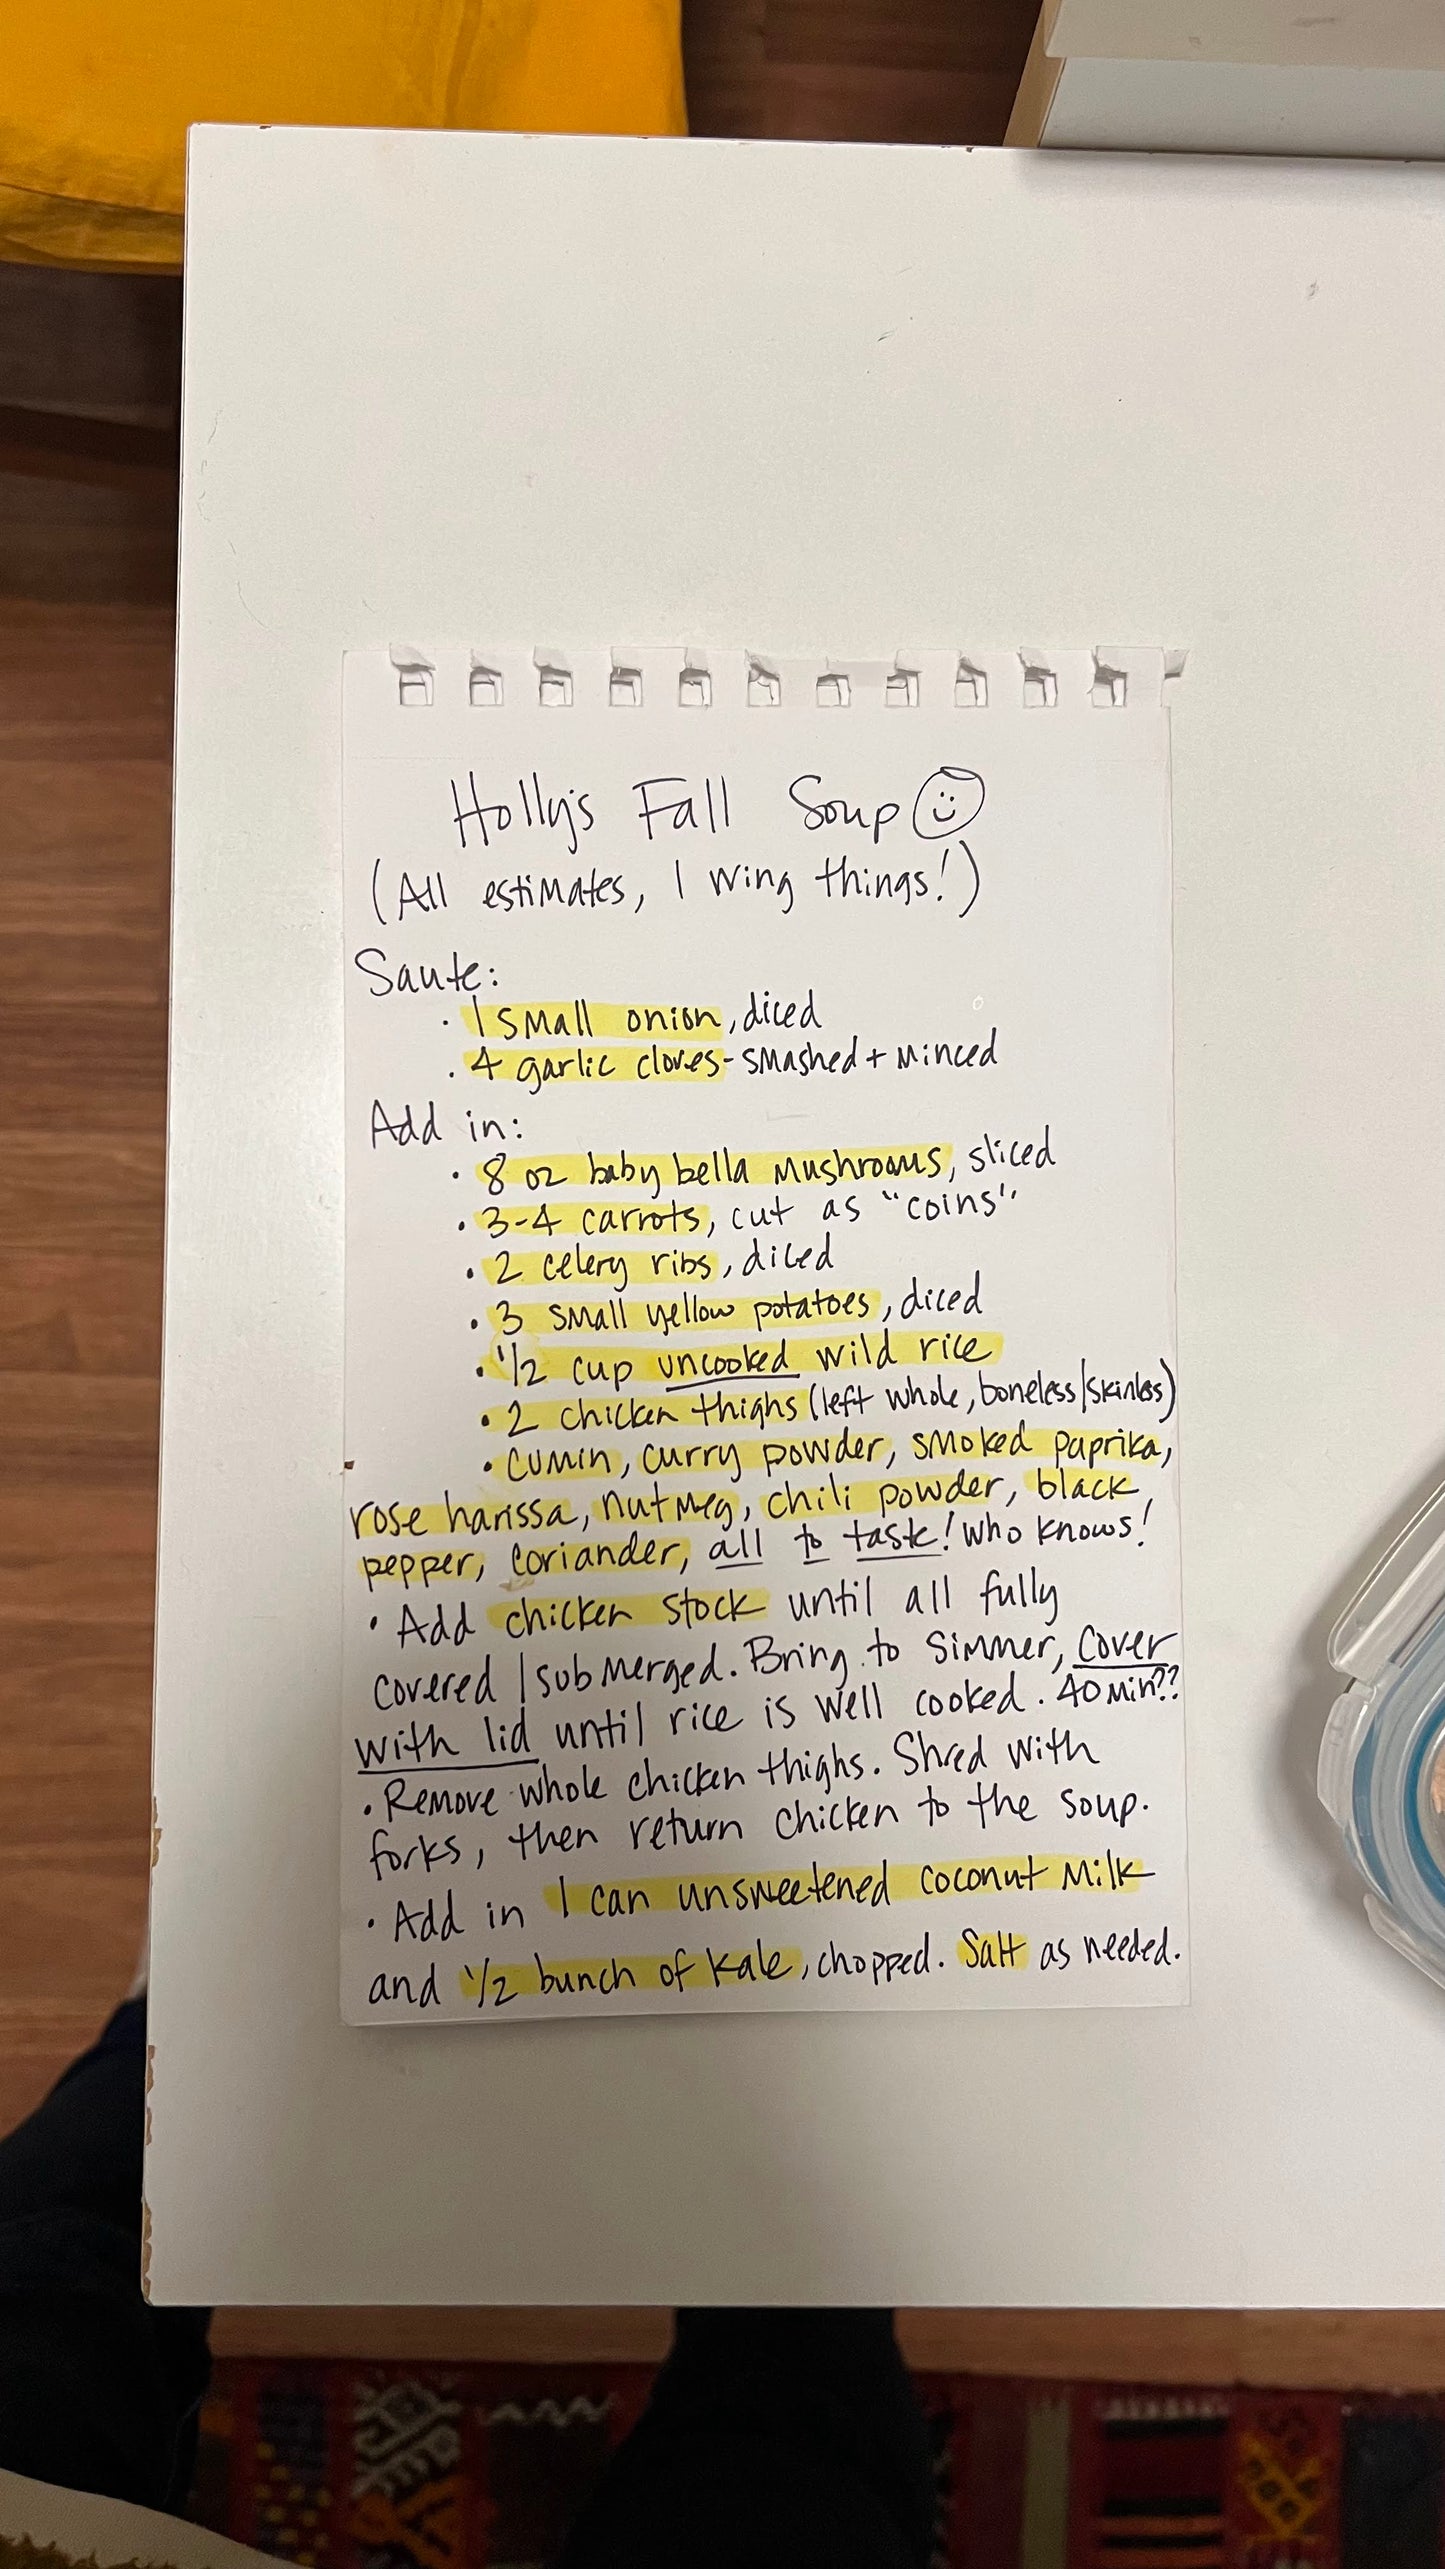 Holly's Fall Soup
(All estimates, I wing things!)
Saute:
• 1 small onion, diced
• 4 garlic cloves - smashed + minced
Add in:
• 8 oz baby bella mushrooms, sliced
• 3-4 carrots, cut as "coins"
• 2 celery ribs, diced
• 3 small yellow potatoes, diced
• 1/2 cup uncooked wild rice
• 2 chicken thighs (left whole, boneless/skinless)
• cumin, curry powder, smoked paprika,
rose harissa, nutmeg, chili powder, black
pepper, coriander, all to taste! who knows!
• Add chicken stock until all fully
covered/submerged. Bring to simmer, cover
with lid until rice is well cooked. 40 min??
• Remove whole chicken thighs. Shred with
forks, then return chicken to the soup.
• Add in 1 can unsweetened coconut milk
and 1/2 bunch of kale, chopped. Salt as needed.